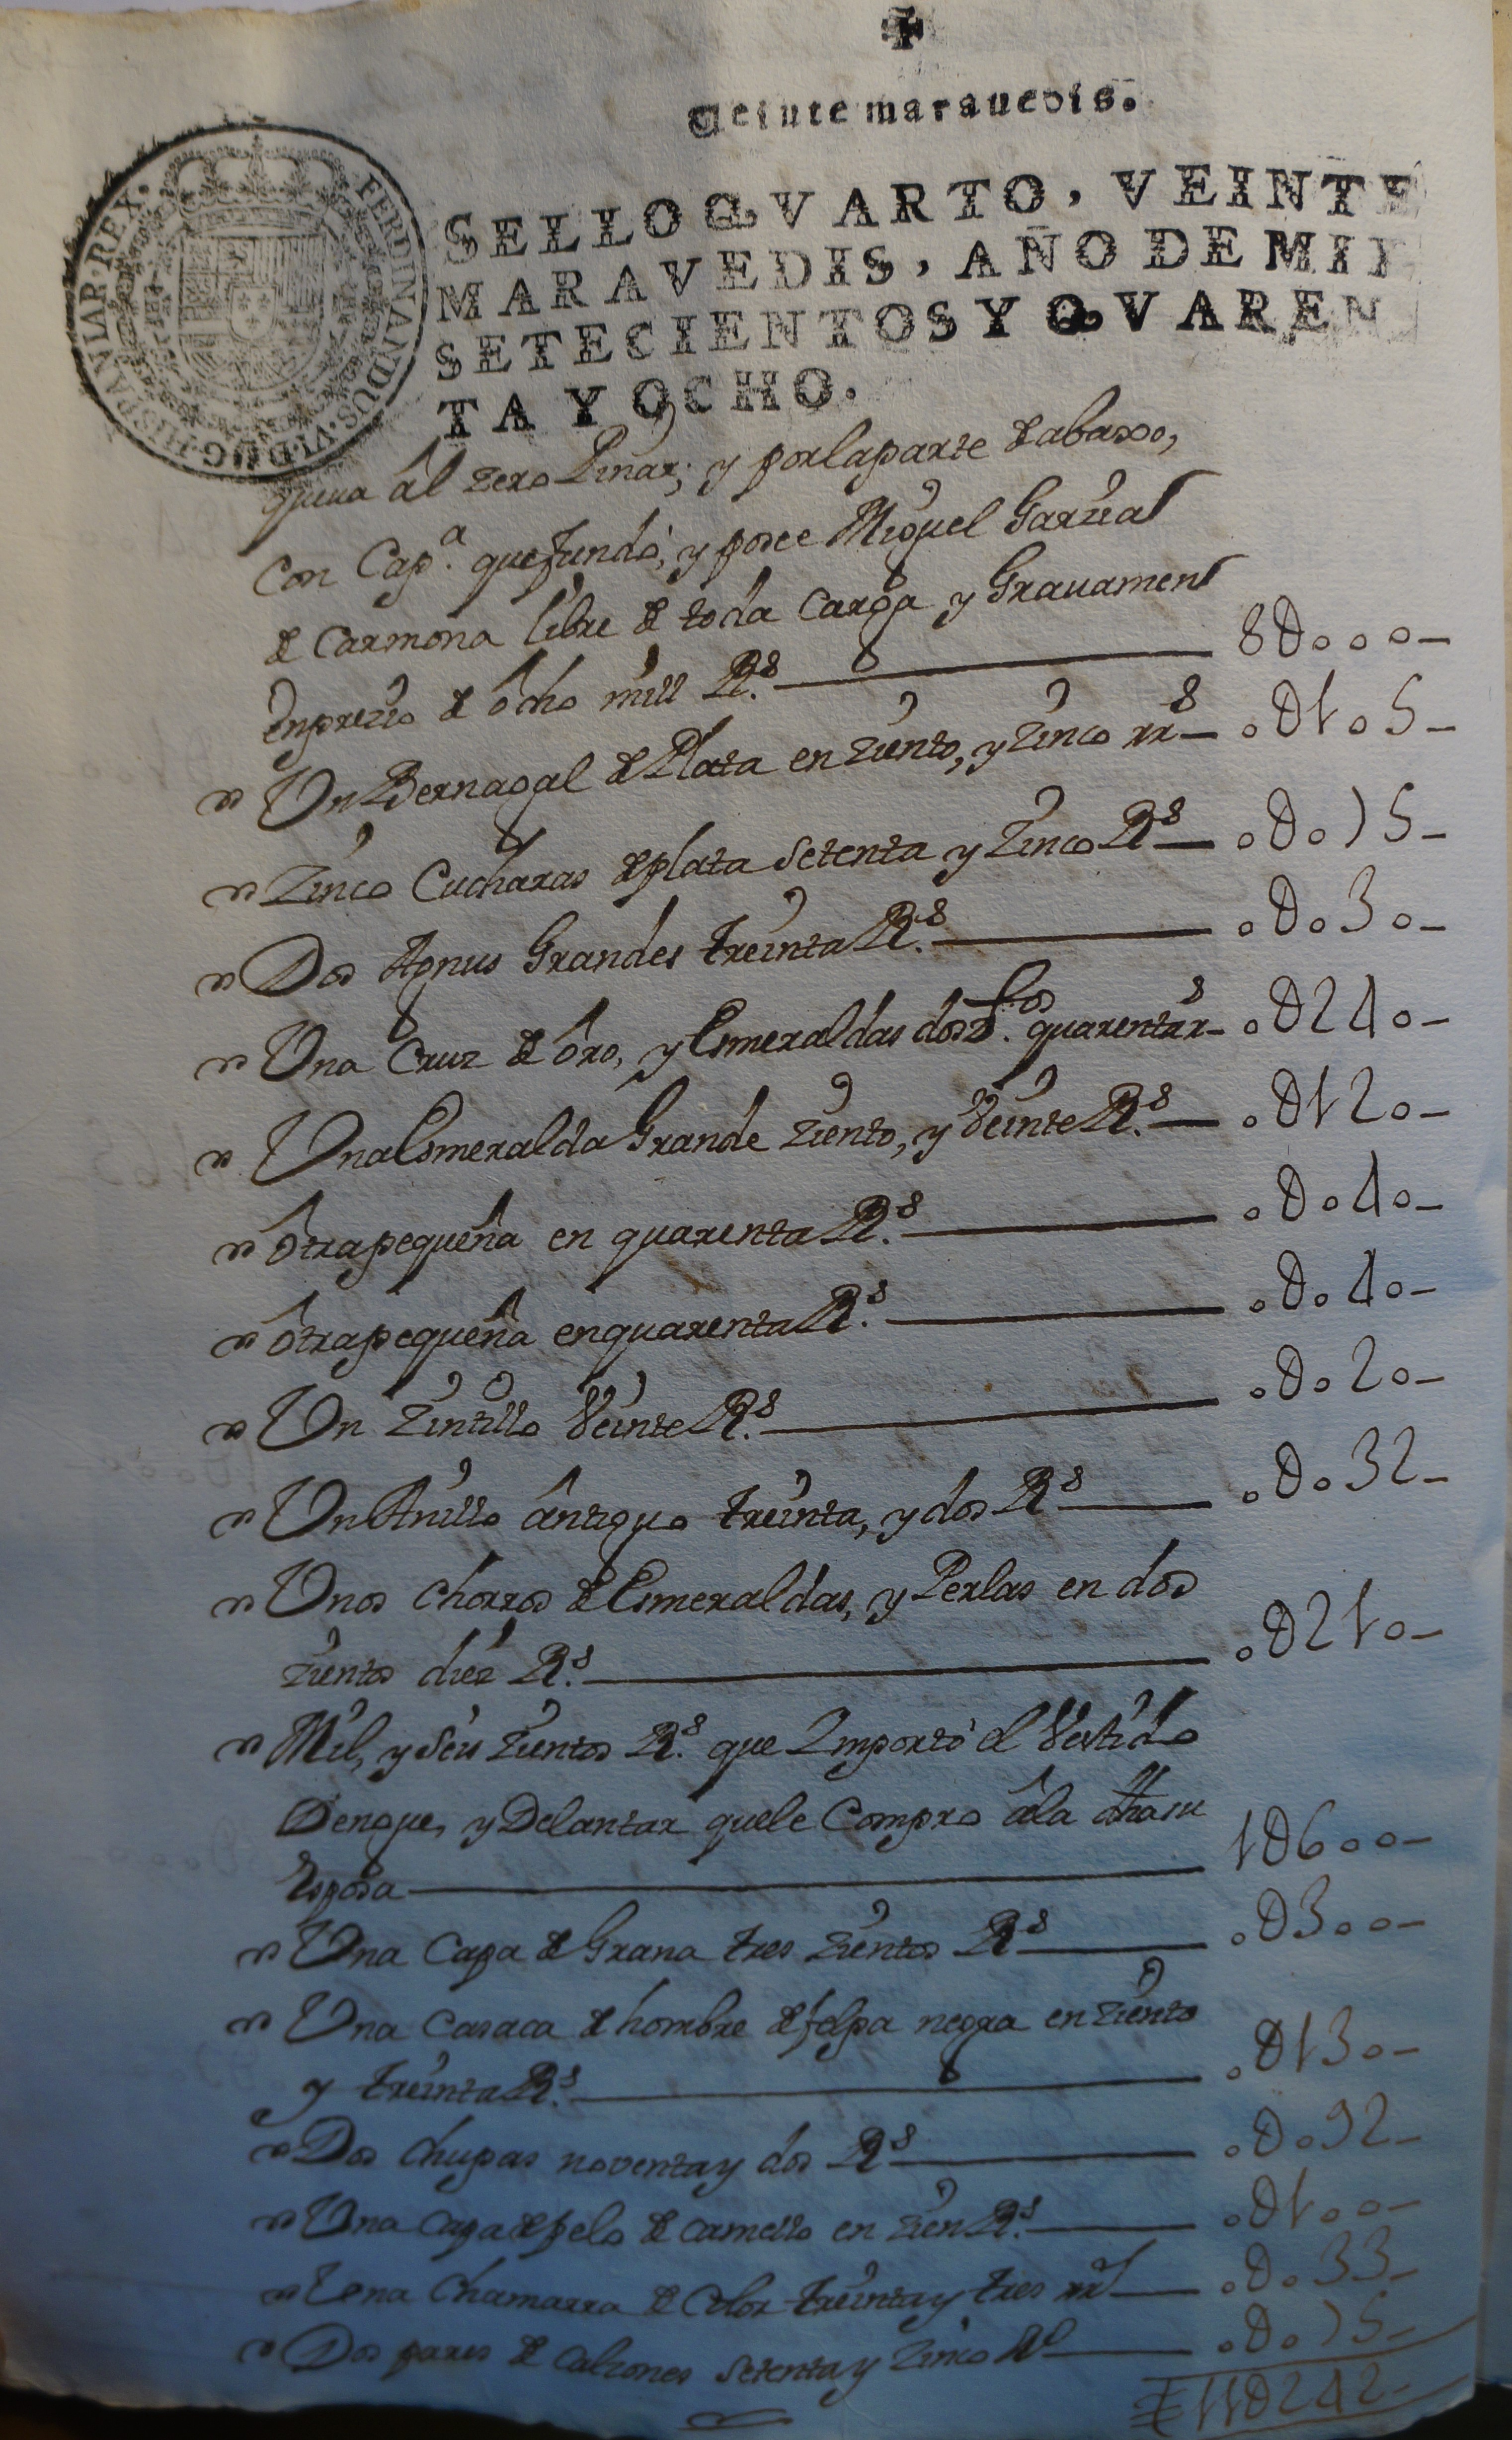 Veinte marauedis.
SELLO QVARTO, VEINTE
MARAVEDIS, AÑO DE MIL
SETECIENTOS Y QVAREN
TA Y OCHO.
FERDINANDUS·VI·D·G·HISPANIAR·REX·
al zero Pinar; y por la parte de abaxo,
Con Cap.ª que fundó, y posee Miguel Garzia
de Carmona libre de toda Carga y Gravamen
en prezio de ôcho mill R.s 8U000
Un Bernagal de Plata en ziento, y zinco rr.s U105
Zinco Cucharas de plata setenta y zinco R.s U075
Dos Agnus Grandes treinta R.s U030
Una Cruz de ôro, y Esmeraldas dosz.tos quarenta r.s U240
Una Esmeralda Grande ziento, y Veinte R.s U120
ôtra pequeña en quarenta R.s U040
ôtra pequeña en quarenta R.s U040
Un Zintillo Veinte R.s U020
Un Anillo ântiguo treinta, y dos R.s U032
Unos chorros de Esmeraldas, y Perlas en dos
zientos diez R.s U210
Mil, y seis zientos R.s que Importó el Vestido
Dengue, y Delantar que le Compro â la dha su
Esposa 1U600
Una Capa de Grana tres zientos R.s U300
Una Casaca de hombre de felpa negra en ziento
y treinta R.s U130
Dos chupas noventa y dos R.s U092
Una Capa de pelo de camello en zien R.s U100
Una Chamarra de Color treinta y tres rr.s U033
Dos pares de Calzones setenta y zinco R.s U075
11U242